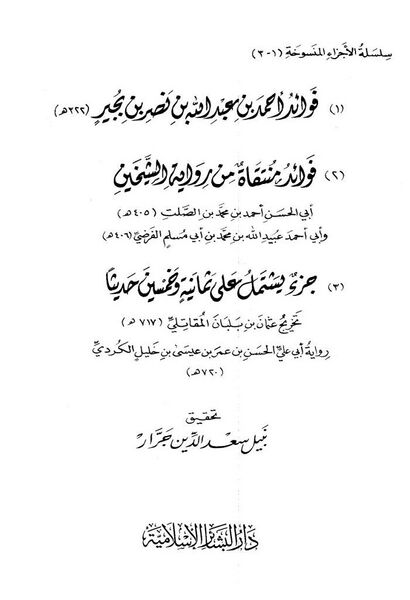 سلسلة الأجزاء المنسوخة (١-٣)
(١) فوائد أحمد بن عبد الله بن نصر بن بُجير (٣٢٢هـ)
(٢) فوائد منتقاة من رواية الشيخين
أبي الحسن أحمد بن محمد بن الصلت (٤٠٥هـ)
وأبي أحمد عبيد الله بن محمد بن أبي مسلم الفرضي (٤٠٦هـ)
(٣) جزء يشتمل على ثمانية وخمسين حديثًا
تخريج عثمان بن بلبان المقاتلي (٧١٧هـ)
رواية أبي علي الحسن بن عمر بن عيسى بن خليل الكردي
(٧٢٠هـ)
تحقيق
نبيل سعد الدين جرار
دار البشائر الإسلامية